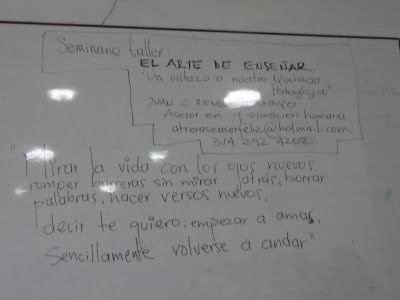 Seminario taller:
EL ARTE DE ENSEÑAR.
"Un vistazo a nuestro Quehacer
Pedagógico"
JUAN C
Asesor en formación humana.
atreraseaserfeliz@hotmail.com
314 292 4202
"Mirar la vida con los ojos nuevos
romper barreras sin mirar atrás, borrar
palabras, hacer versos nuevos,
decir te quiero; empezar a amar,
Sencillamente volverse a andar"